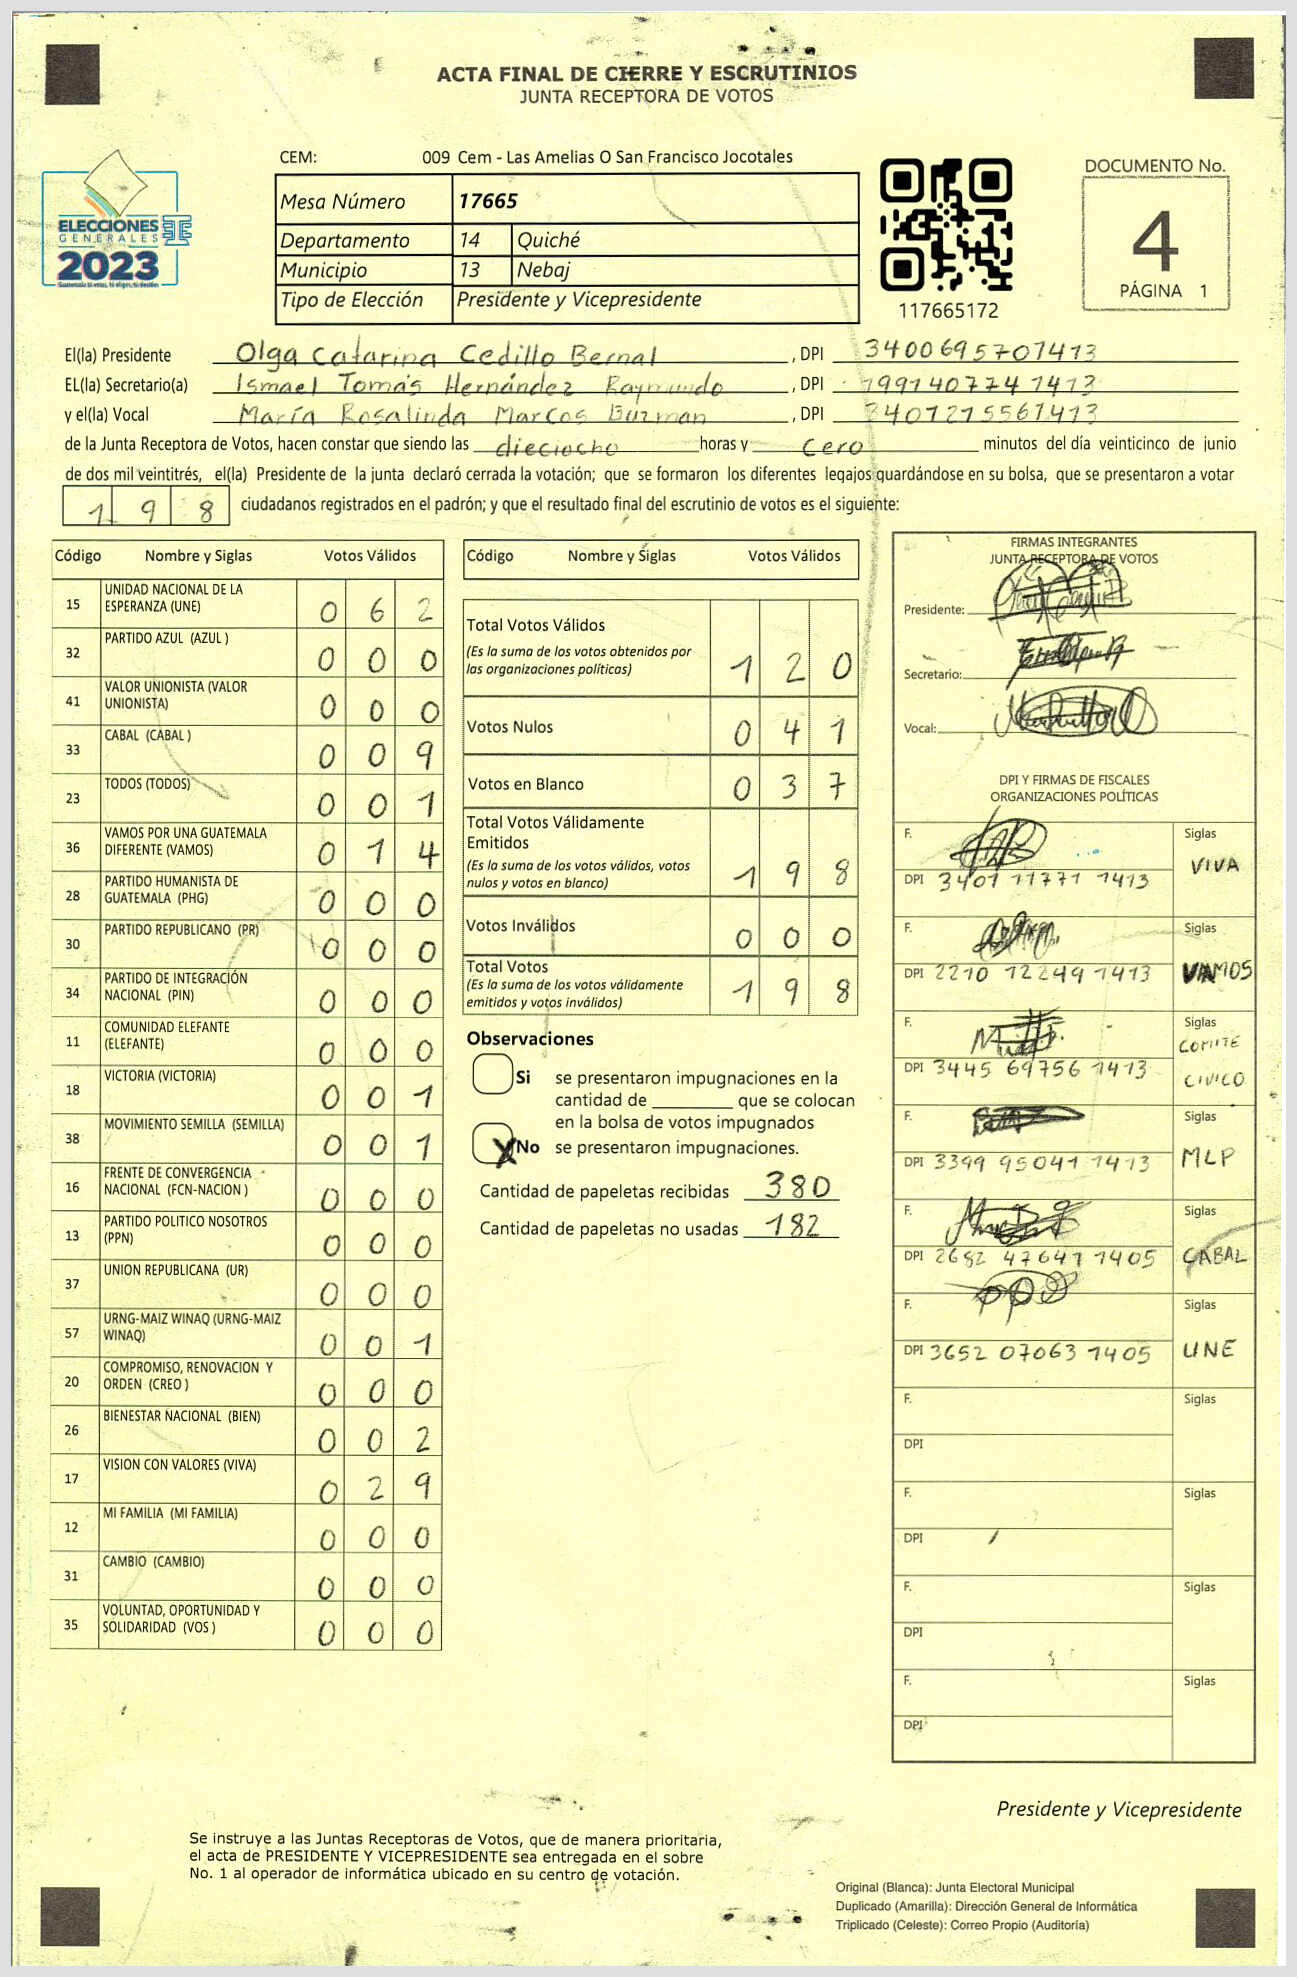 ACTA FINAL DE CIERRE Y ESCRUTINIOS
JUNTA RECEPTORA DE VOTOS
CEM: 009 Cem - Las Amelias O San Francisco Jocotales
ELECCIONES
GENERALES
2023
Mesa Número 17665
Departamento 14 Quiché
Municipio 13 Nebaj
Tipo de Elección Presidente y Vicepresidente
117665172
DOCUMENTO No.
4
PÁGINA 1
El(la) Presidente Olga Catarina Cedillo Bernal, DPI 3400695707413
EL(la) Secretario(a) Ismael Tomás Hernández Raymundo, DPI 1991407741413
y el(la) Vocal María Rosalinda Marcos Guzman, DPI 3401215561413
de la Junta Receptora de Votos, hacen constar que siendo las dieciocho horas y Cero minutos del día veinticinco de junio
de dos mil veintitrés, el(la) Presidente de la junta declaró cerrada la votación; que se formaron los diferentes legajos guardándose en su bolsa, que se presentaron a votar
1 9 8 ciudadanos registrados en el padrón; y que el resultado final del escrutinio de votos es el siguiente:
Código Nombre y Siglas Votos Válidos
15 UNIDAD NACIONAL DE LA ESPERANZA (UNE) 0 6 2
32 PARTIDO AZUL (AZUL ) 0 0 0
41 VALOR UNIONISTA (VALOR UNIONISTA) 0 0 0
33 CABAL (CABAL ) 0 0 9
23 TODOS (TODOS) 0 0 1
36 VAMOS POR UNA GUATEMALA DIFERENTE (VAMOS) 0 1 4
28 PARTIDO HUMANISTA DE GUATEMALA (PHG) 0 0 0
30 PARTIDO REPUBLICANO (PR) 0 0 0
34 PARTIDO DE INTEGRACIÓN NACIONAL (PIN) 0 0 0
11 COMUNIDAD ELEFANTE (ELEFANTE) 0 0 0
18 VICTORIA (VICTORIA) 0 0 1
38 MOVIMIENTO SEMILLA (SEMILLA) 0 0 1
16 FRENTE DE CONVERGENCIA NACIONAL (FCN-NACION ) 0 0 0
13 PARTIDO POLITICO NOSOTROS (PPN) 0 0 0
37 UNION REPUBLICANA (UR) 0 0 0
57 URNG-MAIZ WINAQ (URNG-MAIZ WINAQ) 0 0 1
20 COMPROMISO, RENOVACION Y ORDEN (CREO ) 0 0 0
26 BIENESTAR NACIONAL (BIEN) 0 0 2
17 VISION CON VALORES (VIVA) 0 2 9
12 MI FAMILIA (MI FAMILIA) 0 0 0
31 CAMBIO (CAMBIO) 0 0 0
35 VOLUNTAD, OPORTUNIDAD Y SOLIDARIDAD (VOS ) 0 0 0
Código Nombre y Siglas Votos Válidos
Total Votos Válidos 1 2 0
(Es la suma de los votos obtenidos por
las organizaciones políticas)
Votos Nulos 0 4 1
Votos en Blanco 0 3 7
Total Votos Válidamente
Emitidos 1 9 8
(Es la suma de los votos válidos, votos
nulos y votos en blanco)
Votos Inválidos 0 0 0
Total Votos 1 9 8
(Es la suma de los votos válidamente
emitidos y votos inválidos)
Observaciones
Si se presentaron impugnaciones en la
cantidad de ________ que se colocan
en la bolsa de votos impugnados
X No se presentaron impugnaciones.
Cantidad de papeletas recibidas 380
Cantidad de papeletas no usadas 182
FIRMAS INTEGRANTES
JUNTA RECEPTORA DE VOTOS
Presidente:
Secretario:
Vocal:
DPI Y FIRMAS DE FISCALES
ORGANIZACIONES POLÍTICAS
F. Siglas VIVA
DPI 3401 11771 1413
F. Siglas VAMOS
DPI 2210 12249 1413
F. Siglas COMITE CIVICO
DPI 3445 69756 1413
F. Siglas MLP
DPI 3399 95041 1413
F. Siglas CABAL
DPI 2682 47641 1405
F. Siglas UNE
DPI 3652 07063 1405
F. Siglas
DPI
F. Siglas
DPI
F. Siglas
DPI
F. Siglas
DPI
Presidente y Vicepresidente
Se instruye a las Juntas Receptoras de Votos, que de manera prioritaria,
el acta de PRESIDENTE Y VICEPRESIDENTE sea entregada en el sobre
No. 1 al operador de informática ubicado en su centro de votación.
Original (Blanca): Junta Electoral Municipal
Duplicado (Amarilla): Dirección General de Informática
Triplicado (Celeste): Correo Propio (Auditoría)